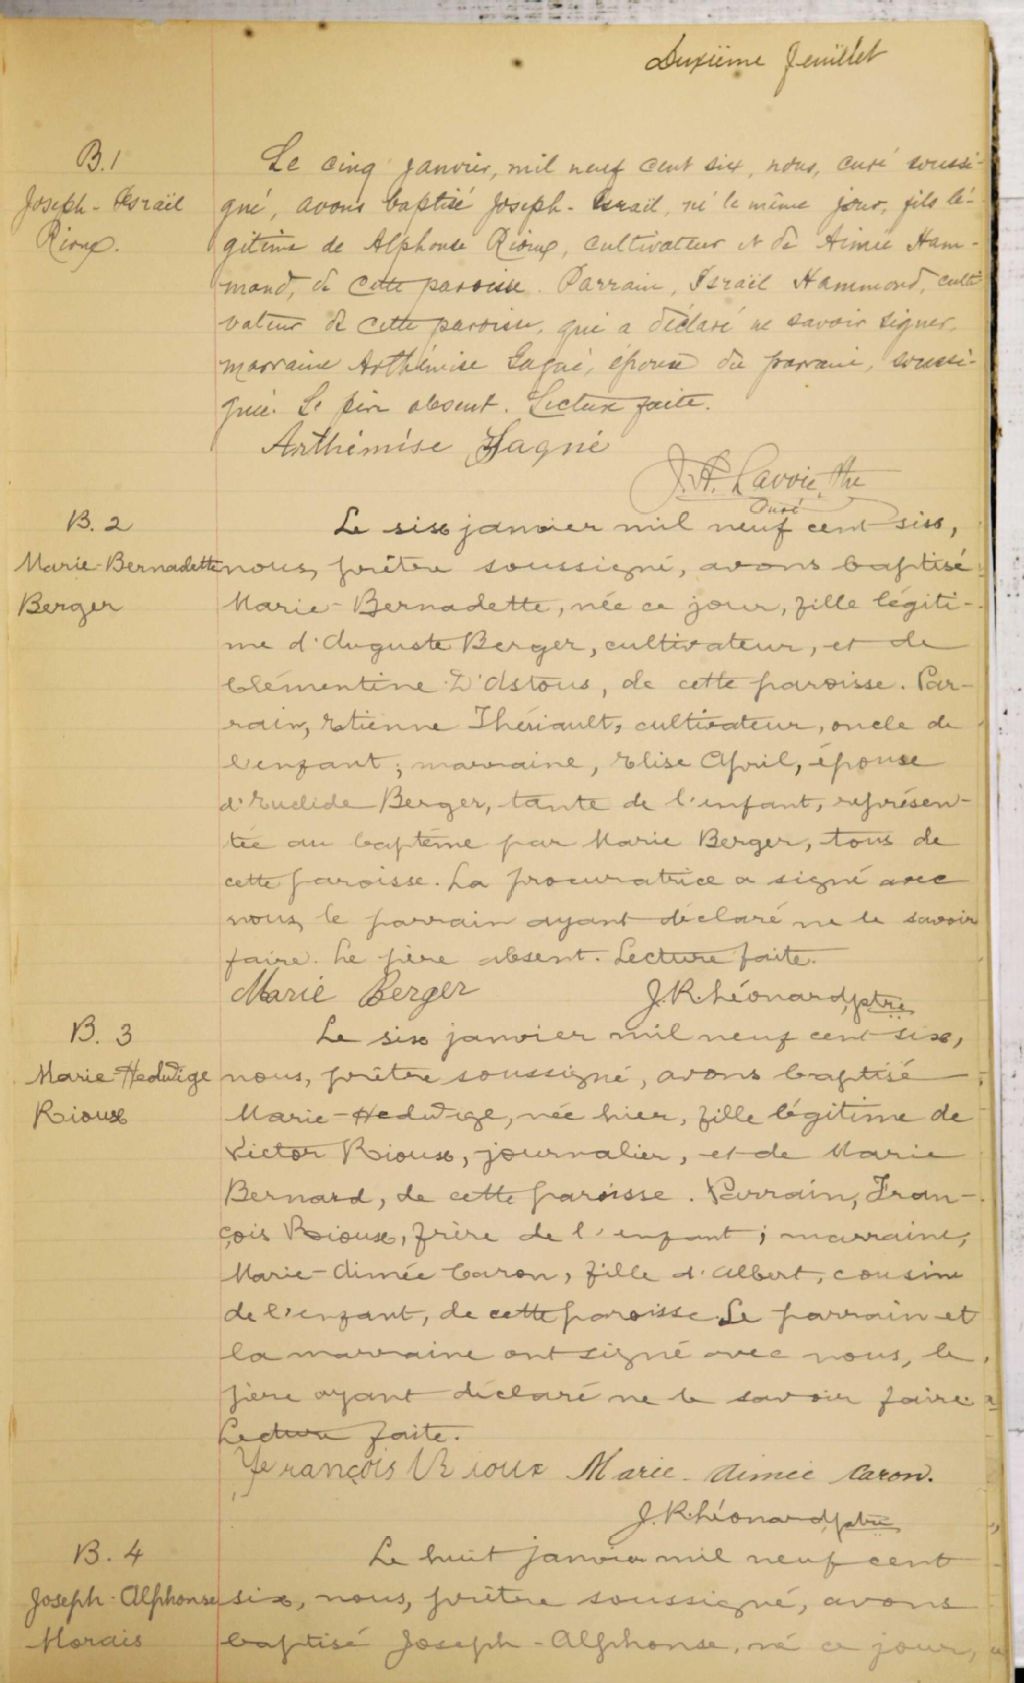 Deuxième feuillet
B.1
Joseph-Israël
Rioux.
Le cinq janvier, mil neuf cent six, nous, curé soussi-
gné, avons baptisé Joseph-Israël, né le même jour, fils lé-
gitime de Alphonse Rioux, cultivateur et de Aimée Ham-
mond, de cette paroisse. Parrain, Israël Hammond, culti-
vateur de cette paroisse, qui a déclaré ne savoir signer,
marraine Arthémise Gagné, épouse du parrain, soussi-
gnée. Le père absent. Lecture faite.
Arthémise Gagné
J.A. Lavoie, Ptre
Curé
B. 2
Marie-Bernadette
Berger
Le six janvier mil neuf cent six,
nous, prêtre soussigné, avons baptisé
Marie-Bernadette, née ce jour, fille légiti-
me d'Auguste Berger, cultivateur, et de
Clémentine D'Astous, de cette paroisse. Par-
rain, Etienne Thériault, cultivateur, oncle de
l'enfant; marraine, Elise April, épouse
d'Euclide Berger, tante de l'enfant, représen-
tée au baptème par Marie Berger, tous de
cette paroisse. La procuratrice a signé avec
nous, le parrain ayant déclaré ne le savoir
faire. Le père absent. Lecture faite.
Marie Berger
J.R. Léonard, ptre
B. 3
Marie Hedwige
Rioux
Le six janvier mil neuf cent six,
nous, prêtre soussigné, avons baptisé
Marie-Hedwige, née hier, fille légitime de
Victor Rioux, journalier, et de Marie
Bernard, de cette paroisse. Parrain, Fran-
çois Rioux, frère de l'enfant; marraine,
Marie-Aimée Caron, fille d'Albert, cousine
de l'enfant, de cette paroisse. Le parrain et
la marraine ont signé avec nous, le
père ayant déclaré ne le savoir faire.
Lecture faite.
François Rioux Marie-Aimée Caron.
J.R. Léonard, ptre
B. 4
Joseph-Alphonse
Morais
Le huit janvier mil neuf cent
six, nous, prêtre soussigné, avons
baptisé Joseph-Alphonse, né ce jour,